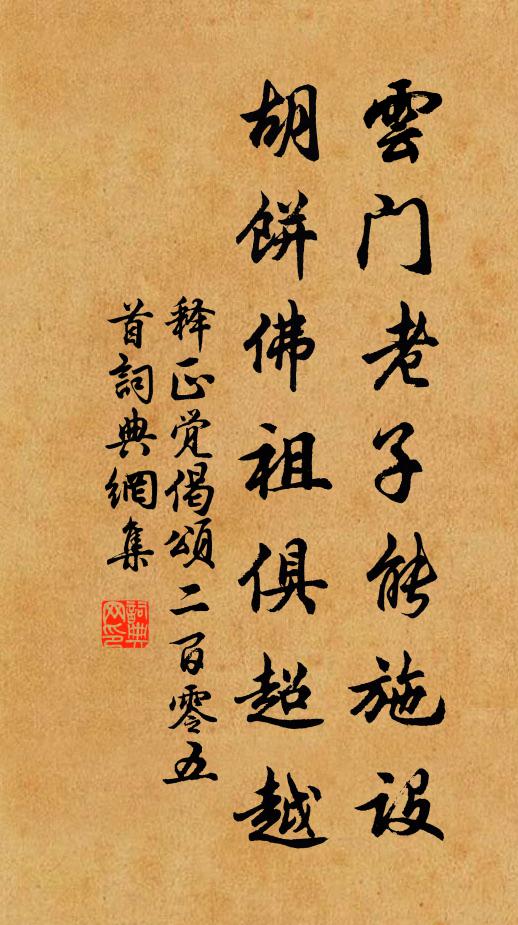 雲門老子能施設
胡餅佛祖俱超越
释正覚偈頌二百零五
首詞典網集
詞典网印